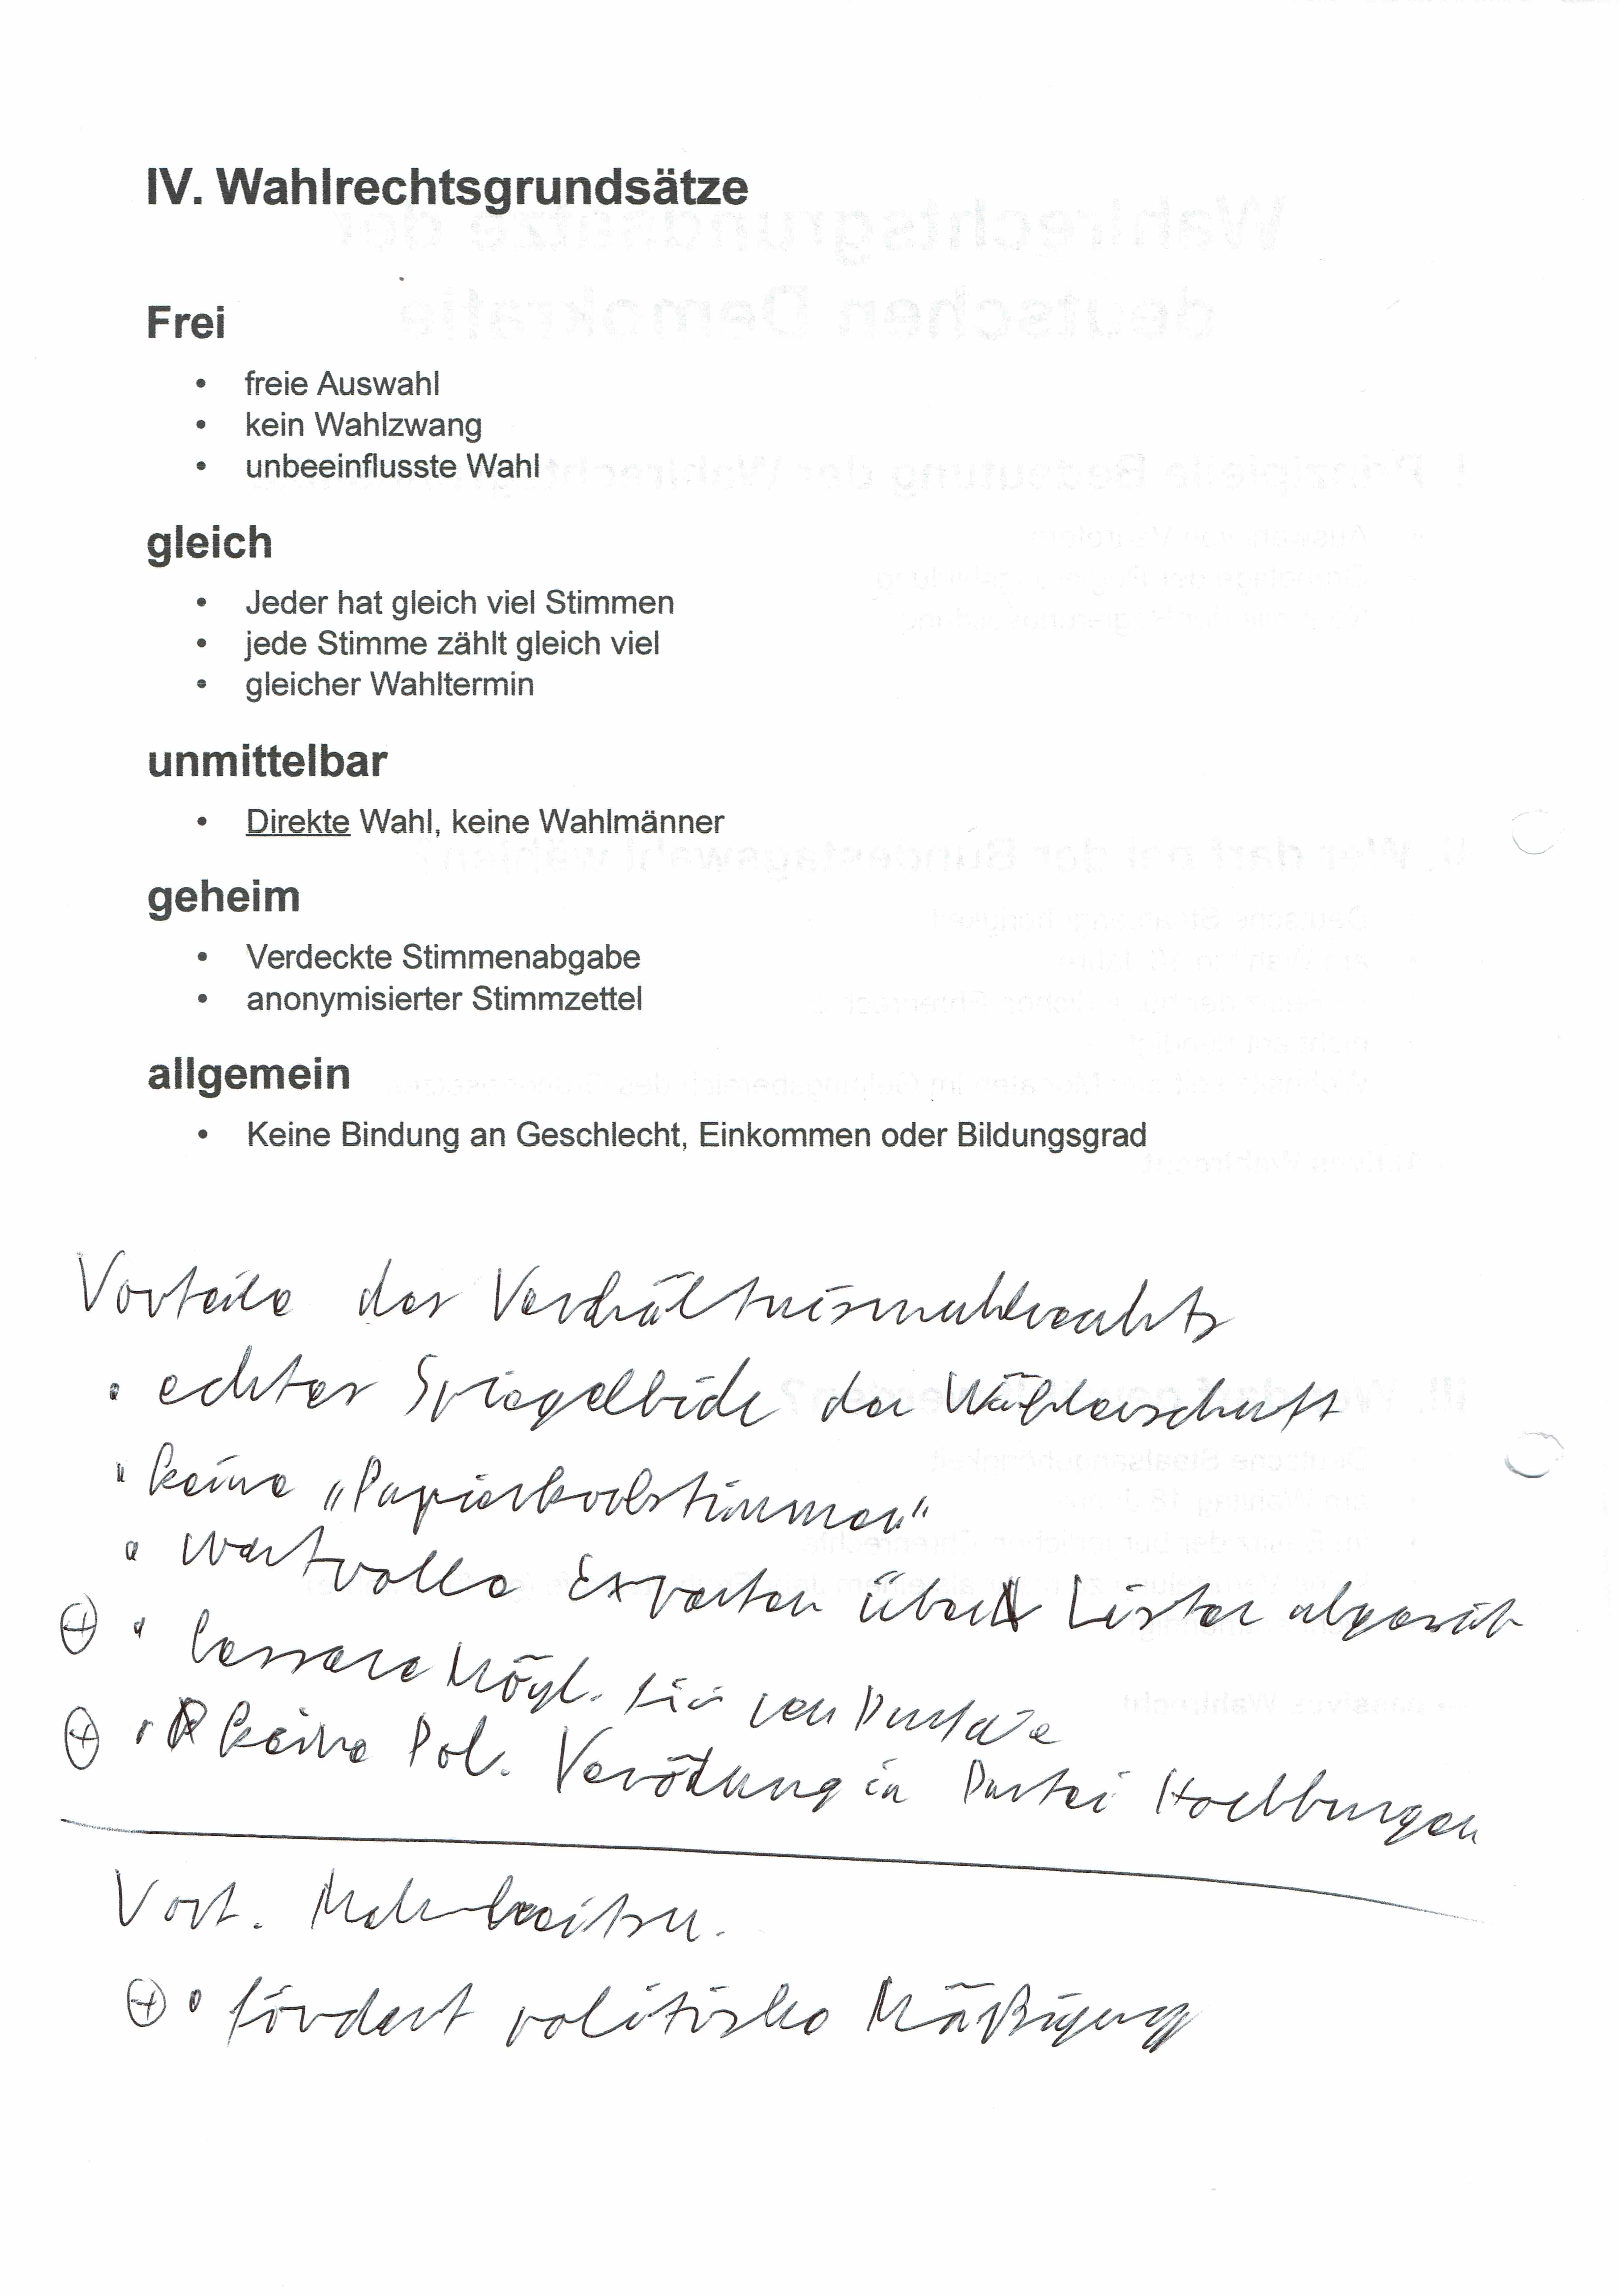 IV. Wahlrechtsgrundsätze
Frei
• freie Auswahl
• kein Wahlzwang
• unbeeinflusste Wahl
gleich
• Jeder hat gleich viel Stimmen
• jede Stimme zählt gleich viel
• gleicher Wahltermin
unmittelbar
• Direkte Wahl, keine Wahlmänner
geheim
• Verdeckte Stimmenabgabe
• anonymisierter Stimmzettel
allgemein
• Keine Bindung an Geschlecht, Einkommen oder Bildungsgrad
Vorteile des Verhältniswahlrechts
• echtes Spiegelbild der Wählerschaft
• keine „Papierkorbstimmen"
• wertvolle Experten über Listen
⊕ • bessere Mögl. für
⊕ • keine Pol. Verödung in Partei Hochburgen
Vort.
⊕ • fördert politische Mäßigung